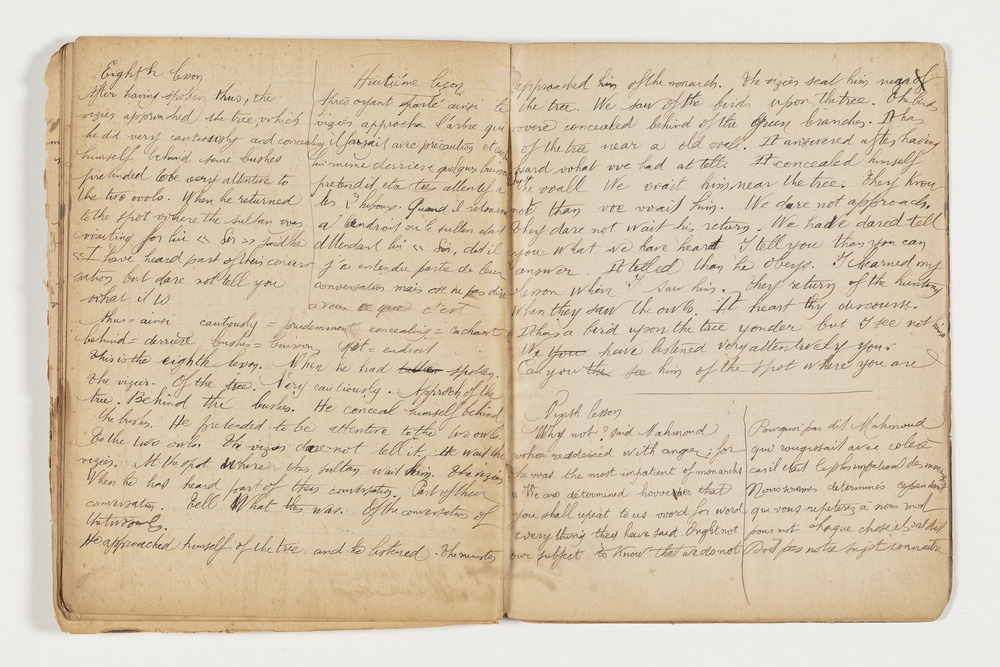 Eighth lesson
After having spoken thus, the
vizier approached the tree which
he did very cautiously and concealing
himself behind some bushes
pretended to be very attentive to
the two owls. When he returned
to the spot where the sultan was
waiting for lui « Sir » said he
« I have heard part of their conver
sation but dare not tell you
what it is
Huitième leçon
vizier approcha l'arbre qui
il faisait avec précaution et
lui même derrière quelques buissons
pretendit etre tres attentif a
les 2 hiboux. Quand il retourna
a l'endroit ou le sultan etait
attendant lui « Sir, dit il
j'ai entendu partie de leur
conversation mais ose ne pas dire
a vous ce que c'est
thus = ainsi cautiously = prudemment concealing = cachant
behind = derriere bushes = buisson spot = endroit
This is the eighth lesson. When he had spoken.
The vizier. Of the tree. Very cautiously. Approch of the
tree. Behind the bushes. He conceal himself behind
the bushes. He pretended to be attentive to the two owls.
To the two owls. The vizier dare not tell it. He wait the
vizier. At the spot where the sultan wait him. The vizier
When he has heard part of their conversation. Part of their
conversation Tell What this was. Of the conversation of
the two owls.
He approached himself of the tree and to listened. The minister
approached him of the monarch. The vizier seat him near of
the tree. We saw of the birds upon the tree. The bird
were concealed behind of the green branches. It has
of the tree near a old wall. It answered after having
heard what we had at tell. It concealed himself
the wall We wait him near the tree. They know
not than we wait him. We dare not approach.
They dare not wait his return. We have dared tell
you What we have heard I tell you than you can
answer. It telled than he obeys. I learned my
lesson When I saw him. They return of the hunting
When they saw the owls. It heart thy discourse.
It has a bird upon the tree yonder but I see not him
We you have listened very attentively you.
Can you the see him of the spot where you are
lesson
Why not? said Mahmoud
who reddened with anger, for
he was the most impatient of monarchs
« We are determined however that
you shall repeat to us word for word
every thing they have said. Ought not
our subject to know that we do not
Pourquoi pas dit Mahmoud
qui rougissait avec colere
car il etait le plus impatient des monar
Nous sommes determinés cependant
que vous repeterez a nous mot
pour mot chaque chose ils ont dit
Doit pas notre sujet connaitre